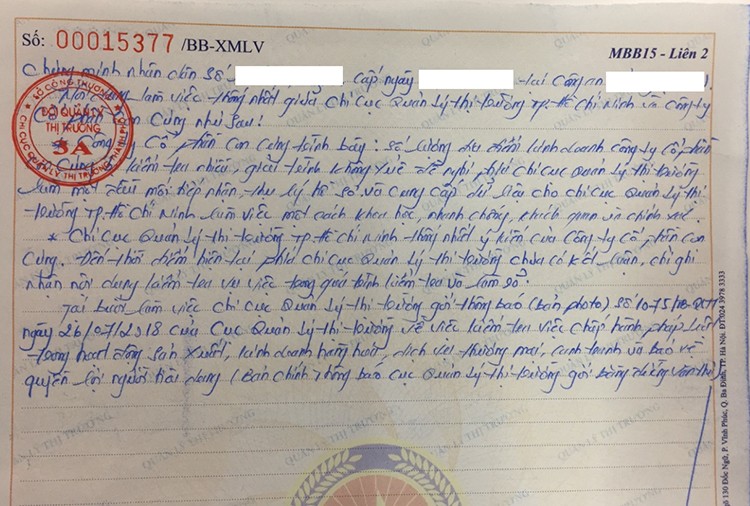 Số: 00015377 /BB-XMLV
MBB15 - Liên 2
Chứng minh nhân dân số cấp ngày tại Công an
Nội dung làm việc thống nhất giữa Chi Cục Quản Lý thị trường TP. Hồ Chí Minh và Công ty
Cổ phần Con Cưng như sau:
* Công ty Cổ phần Con Cưng trình bày: Số lượng địa điểm kinh doanh Công ty Cổ phần
Con Cưng kiểm tra nhiều, giải trình không xuể đề nghị phía Chi Cục Quản Lý thị trường
làm một đầu mối tiếp nhận, thụ lý hồ sơ và cung cấp dữ liệu cho Chi Cục Quản Lý thị
trường TP. Hồ Chí Minh làm việc một cách khoa học, nhanh chóng, khách quan và chính xác.
* Chi Cục Quản Lý thị trường TP. Hồ Chí Minh thống nhất ý kiến của Công ty Cổ phần Con
Cưng. Đến thời điểm hiện tại phía Chi Cục Quản Lý thị trường chưa có kết luận, chỉ ghi
nhận nội dung kiểm tra vụ việc trong quá trình kiểm tra và làm số.
Tại buổi làm việc Chi Cục Quản Lý thị trường gởi thông báo (bản photo) số 1075/
ngày 26/07/2018 của Cục Quản Lý thị trường về việc kiểm tra việc chấp hành pháp luật
trong hoạt động sản xuất, kinh doanh hàng hoá, dịch vụ thương mại, cạnh tranh và bảo vệ
quyền lợi người tiêu dùng (Bản chính thông báo Cục Quản Lý thị trường gởi bằng đường văn thư)
BỘ CÔNG THƯƠNG
ĐỘI QUẢN LÝ
THỊ TRƯỜNG
3A
CHI CỤC QUẢN LÝ THỊ TRƯỜNG THÀNH PHỐ
QUẢN LÝ THỊ TRƯỜNG
130 Đốc Ngữ, P. Vĩnh Phúc, Q. Ba Đình, TP. Hà Nội. ĐT:024 3978 3333